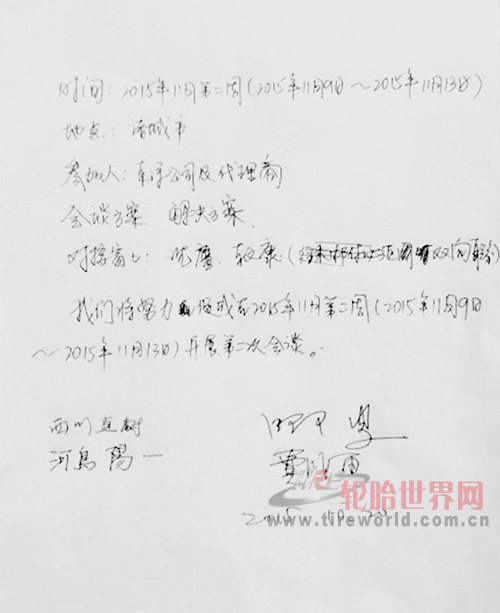 时间：2015年11月第二周（2015年11月9日～2015年11月13日）
地点：诸城市
参加人：东洋公司及代理商
会谈方案：解决方案
对接窗口：
我们将努力促成在2015年11月第二周（2015年11月9日
～2015年11月13日）开展第二次会谈。
西川直樹
河島 陽一
2015 10 20
轮胎世界网
www.tireworld.com.cn